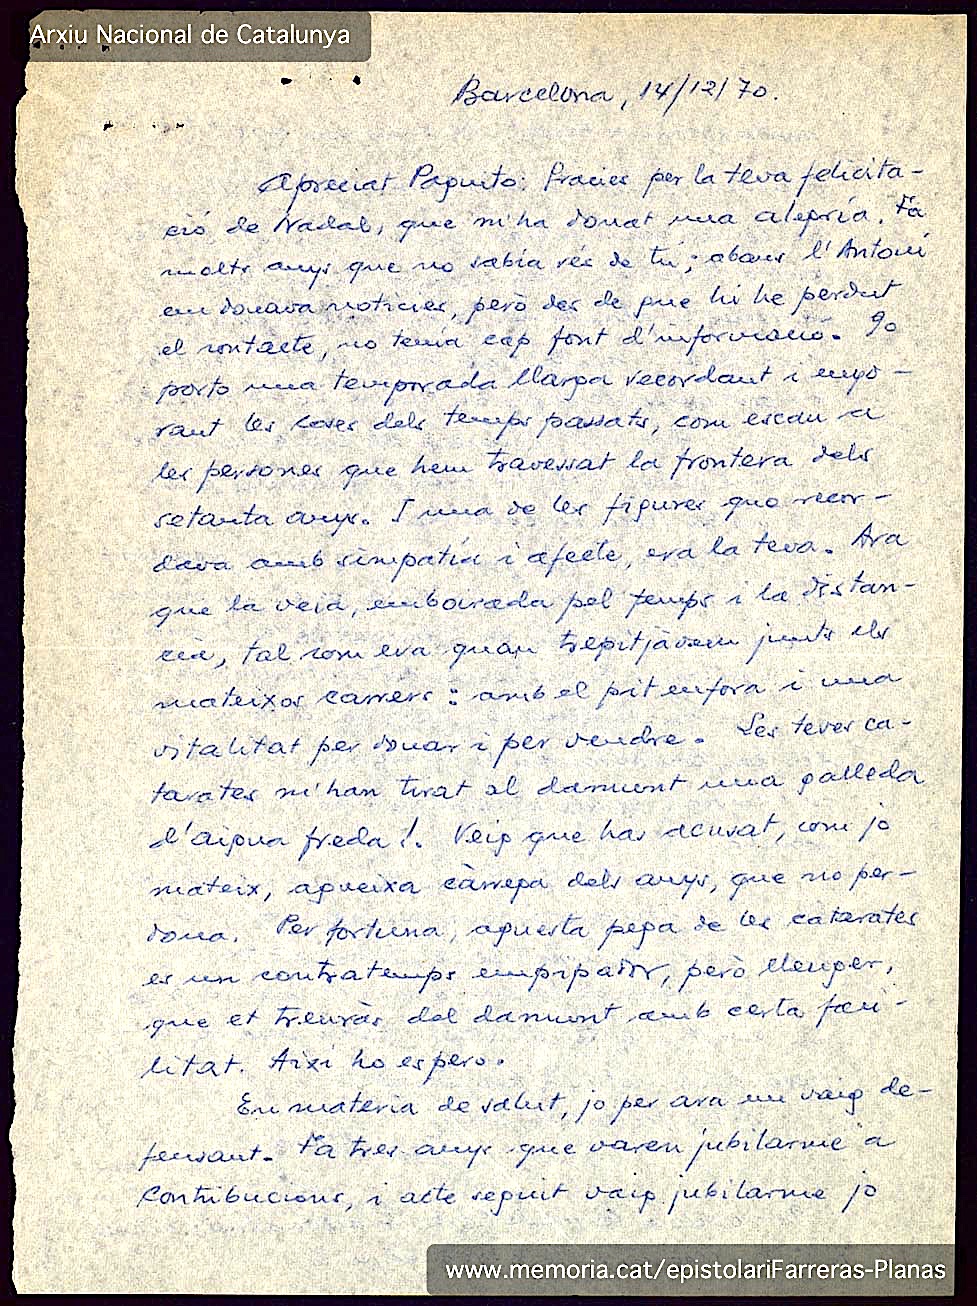 Arxiu Nacional de Catalunya
Barcelona, 14/12/70.
Apreciat Paquito: Gracies per la teva felicita-
ció de Nadal, que m'ha donat una alegría. Fa
molts anys que no sabía rés de tú; abans l'Antoni
em donava noticies, però des de que hi he perdut
el contacte, no tenia cap font d'informació. Jo
porto una temporada llarga recordant i enyo-
rant les coses dels temps passats, com escau a
les persones que hem travessat la frontera dels
setanta anys. I una de les figures que recor-
dava amb simpatía i afecte, era la teva. Ara
que la veia, emboirada pel temps i la distan-
cia, tal com era quan trepitjàvem junts els
mateixos carrers: amb el pit enfora i una
vitalitat per donar i per vendre. Les teves ca-
tarates m'han tirat al damunt una galleda
d'aigua freda!. Veig que has acusat, com jo
mateix, aqueixa càrrega dels anys, que no per-
dona. Per fortuna, aquesta pega de les catarates
es un contratemps empipador, però lleuger,
que et treuràs del damunt amb certa faci-
litat. Així ho espero.
En materia de salut, jo per ara em vaig de-
fensant. Fa tres anys que varen jubilarme a
Contribucions, i acte seguit vaig jubilarme jo
www.memoria.cat/epistolariFarreras-Planas